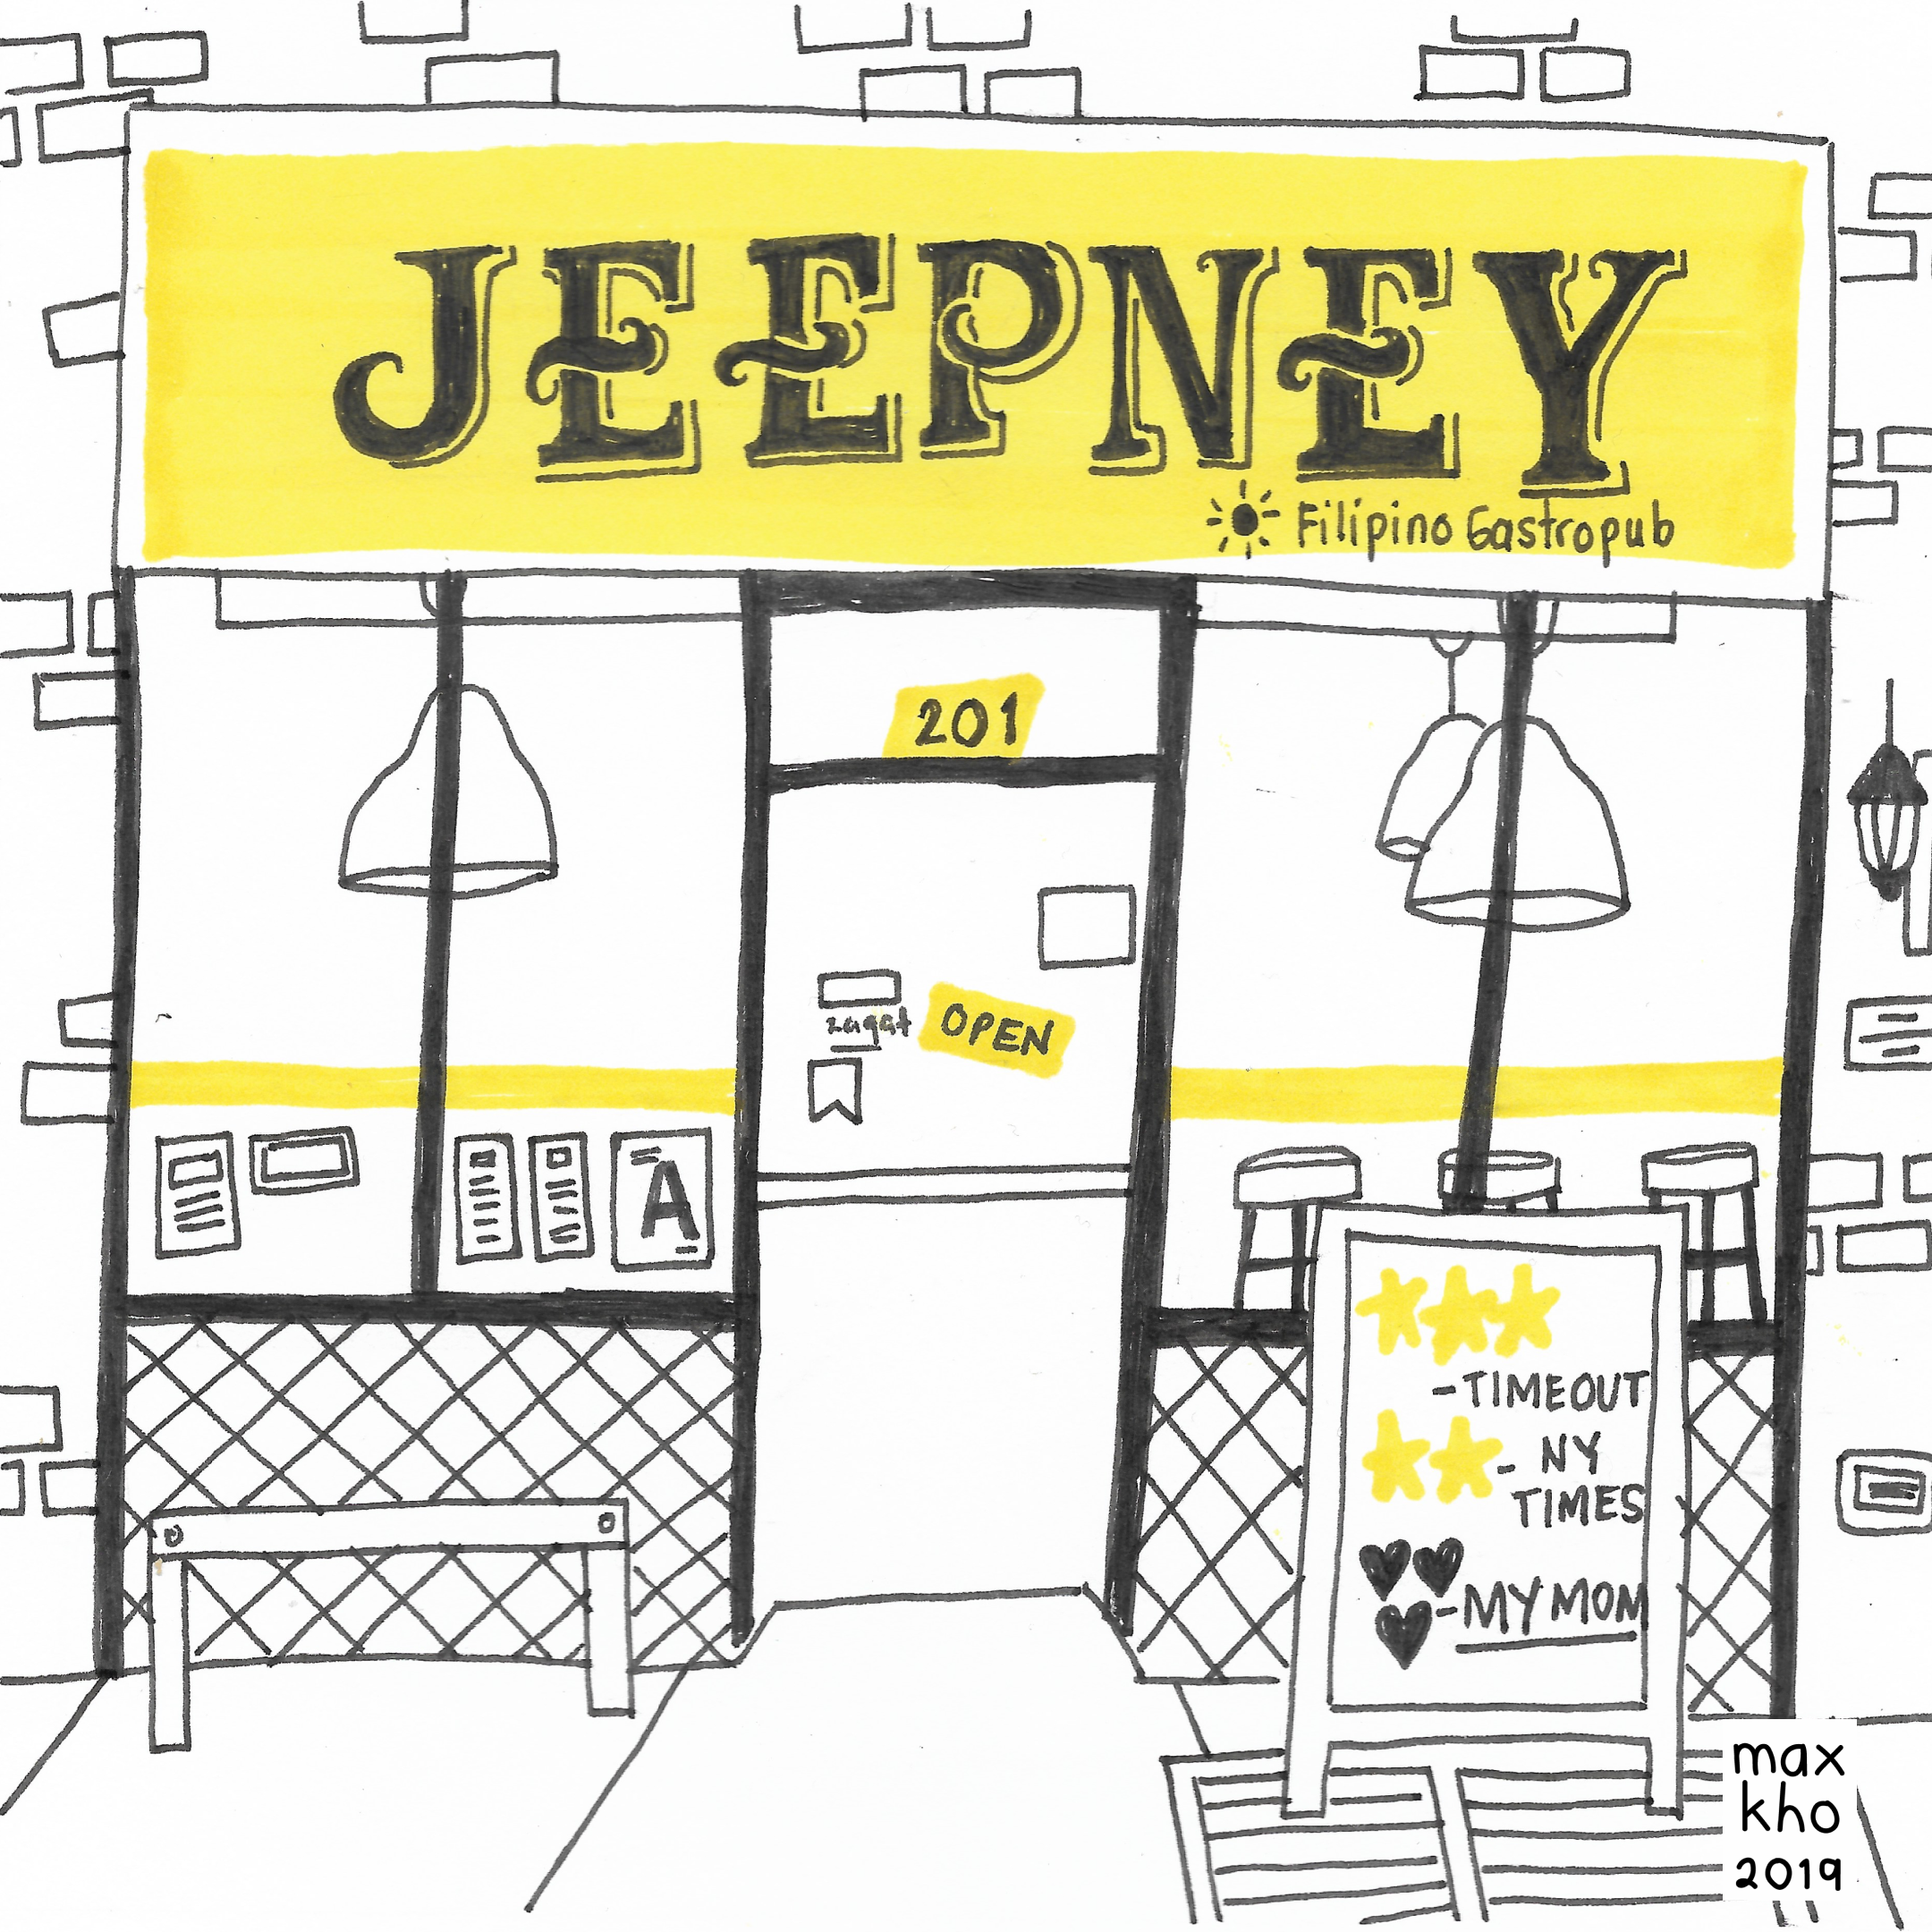 JEEPNEY
Filipino Gastropub
201
zagat
OPEN
A
-TIMEOUT
- NY
TIMES
-MY MOM
max
kho
2019